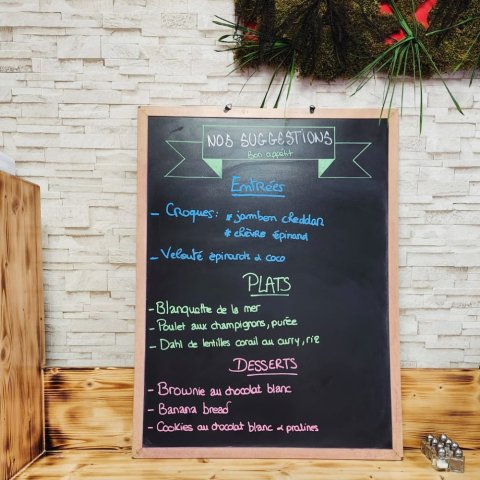 NOS SUGGESTIONS
Bon appétit
Entrées
- Croques: * jambon cheddar
* chèvre épinard
- Velouté épinards & coco
PLATS
- Blanquette de la mer
- Poulet aux champignons, purée
- Dahl de lentilles corail au curry, riz
DESSERTS
- Brownie au chocolat blanc
- Banana bread
- Cookies au chocolat blanc & pralines